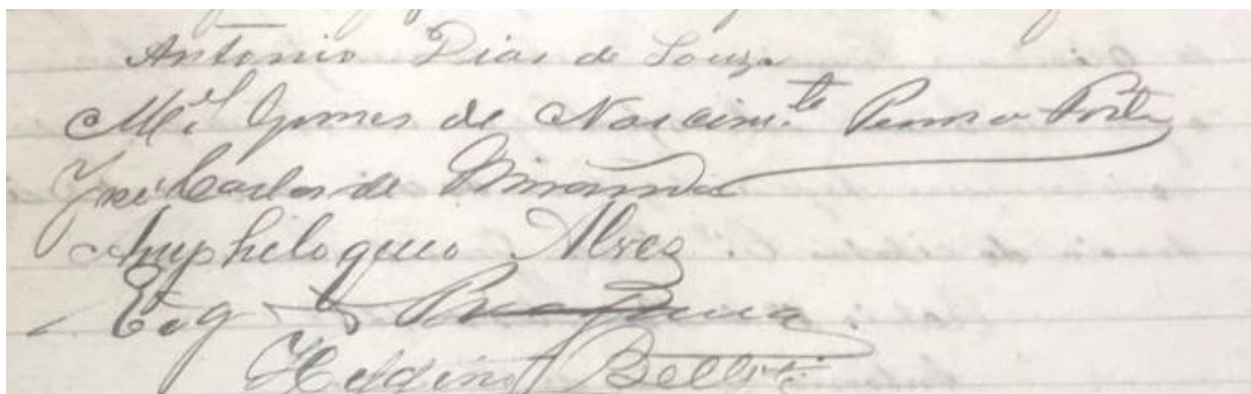 Antonio Dias de Souza
M.el Gomes de Nascim.to Penna Forte
José Carlos de Miranda
Amphiloquio Alves.
Eug
Bellot